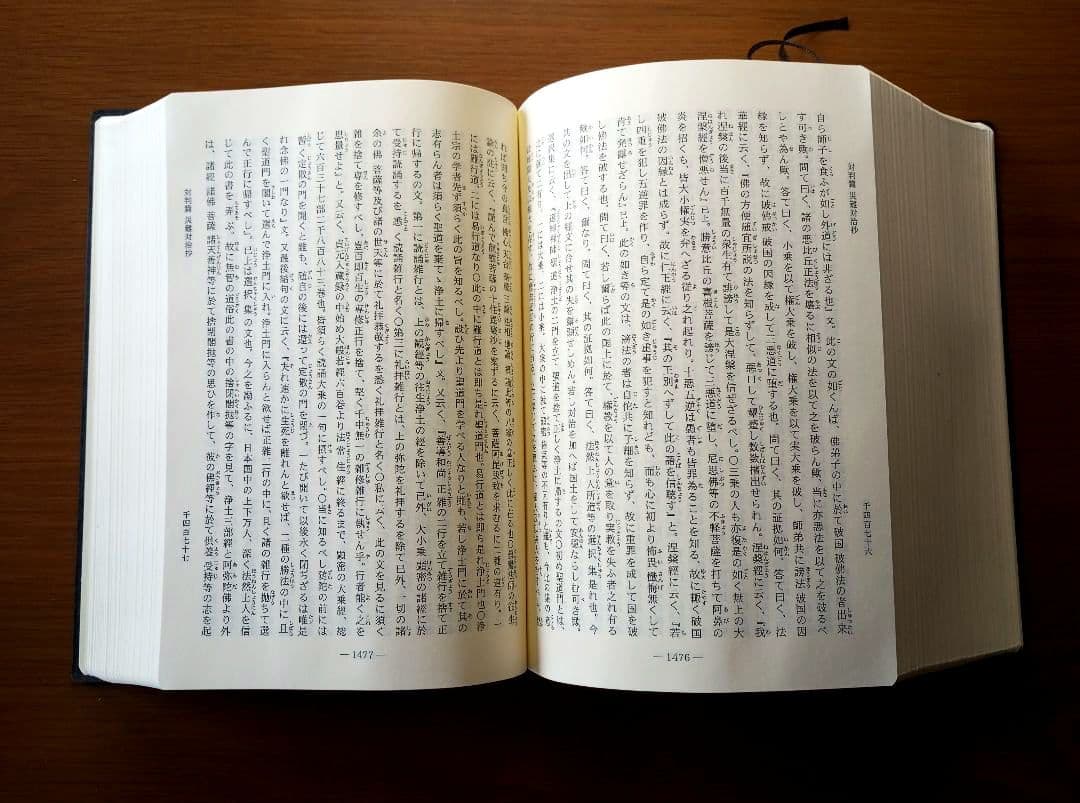 自ら師子を食ふが如し外道には非ざる也』文。此の文の如くんば、佛弟子の中に於て破国破佛法の者出来
す可き歟。問て曰く、諸の悪比丘正法を壊るに相似の法を以て之を破らん歟、当に亦悪法を以て之を破るべ
しとや為ん歟。答て曰く、小乗を以て権大乗を破し、権大乗を以て実大乗を破し、師弟共に謗法破国の因
縁を知らず、故に破佛戒破国の因縁を成して三悪道に堕する也。問て曰く、其の証拠如何。答て曰く、法
華經に云く、『佛の方便随宜所説の法を知らずして、悪口して顰蹙し数数擯出せられん。涅槃經に云く、『我
れ涅槃の後当に百千無量の衆生有て誹謗して是大涅槃を信ぜざるべし。〇三乗の人も亦復是の如く無上の大
涅槃經を憎悪せん』已上。勝意比丘の喜根菩薩を謗じて三悪道に堕し、尼思佛等の不軽菩薩を打ちて阿鼻の
炎を招くも、皆大小権実を弁へざる従り之れ起れり。十悪五逆は愚者も皆罪為ることを知る、故に輙く破国
破佛法の因縁と成らず。故に仁王經に云く、『其の王別へずして此の語を信聴す』と。涅槃經に云く、『若
し四重を犯し五逆罪を作り、自ら定て是の如き重事を犯すと知れども、而も心に初より怖畏懺悔無くして
肯て発露せざらん』已上。此の如き等の文は、謗法の者は自他共に子細を知らず、故に重罪を成して国を破
し佛法を破する也。問て曰く、若し爾らば此の国土に於て、権教を以て人の意を取り実教を失ふ者之れ有る
歟如何。答て曰く、爾なり。問て曰く、其の証拠如何。答て曰く、法然上人所造等の選択集是れ也。今
其の文を出して上の経文に合せ其の失を露顕せしめん。若し対治を加へば国土をして安穏ならしむ可き歟。
選択集に云く、
対判篇 災難対治抄
千四百七十六
—1476—
には難行道、二には易行道なり〇此の中に難行道とは即ち是れ聖道門也、易行道とは即ち是れ浄土門也〇浄
土宗の学者先ず須らく此の旨を知るべし。設ひ先より聖道門を学べる人なりと雖も、若し浄土門に於て其の
志有らん者は須らく聖道を棄て浄土に帰すべし』文。又云く、『善導和尚、正雑の二行を立て雑行を捨て正
行に帰するの文。第一に読誦雑行とは、上の観經等の往生浄土の經を除いて已外、大小乗顕密の諸經に於
て受持読誦するを、悉く読誦雑行と名く〇第三に礼拝雑行とは、上の弥陀を礼拝する除て已外、一切の諸
余の佛菩薩等及び諸の世天等に於て礼拝恭敬するを悉く礼拝雑行と名く〇私に云く、此の文を見るに須く
雑を捨て専を修すべし。豈百即百生の専修正行を捨て、堅く千中無一の雑修雑行に執せん乎。行者能く之を
思量せよ』と。又云く、貞元入蔵録の中始め大般若經六百巻より法常住經に終るまで、顕密の大乗經、総
じて六百三十七部二千八百八十三巻也。皆須らく読誦大乗の一句に摂すべし。〇当に知るべし随他の前には
暫く定散の門を開くと雖も、随自の後には還って定散の門を閉づ。一たび開いて以後永く閉ぢざるは唯是
れ念佛の一門なり』文。又最後結句の文に云く、『夫れ速かに生死を離れんと欲せば、二種の勝法の中に且
く聖道門を閣いて選んで浄土門に入れ。浄土門に入らんと欲せば正雑二行の中に、且く諸の雑行を抛ちて選
んで正行に帰すべし』。已上は選択集の文也。今之を勘ふるに、日本国中の上下万人、深く法然上人を信
じて此の書を弄ぶ。故に無智の道俗此の書の中の捨閉閣抛等の字を見て、浄土三部經と阿弥陀佛より外
は、諸經諸佛菩薩諸天善神等に於て捨閉閣抛等の思ひを作して、彼の佛經等に於て供養受持等の志を起
対判篇 災難対治抄
千四百七十七
—1477—